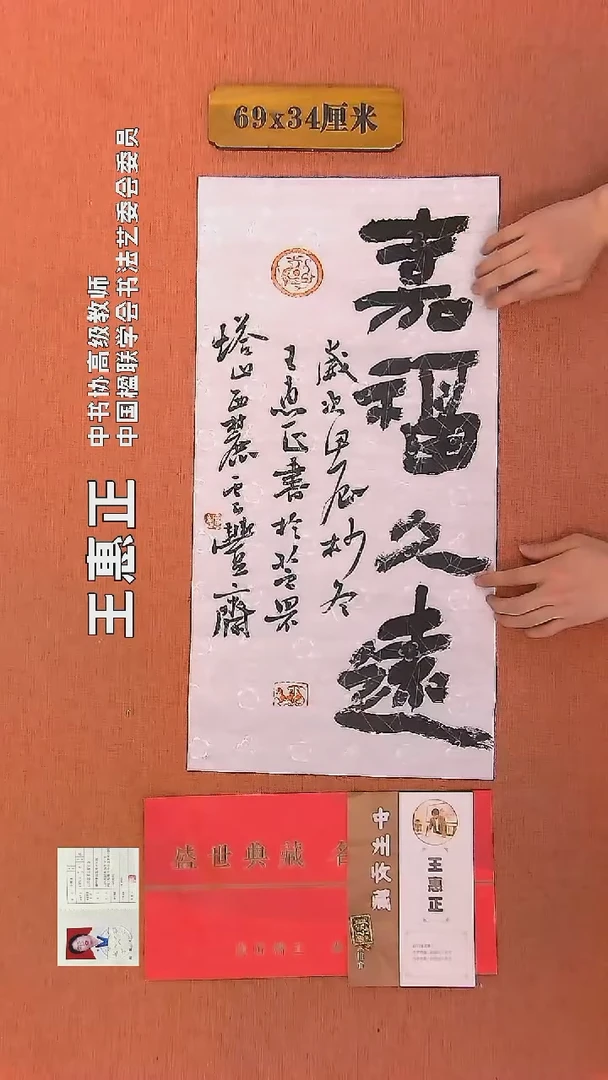 69x34厘米
嘉福久遠
歲次甲辰杪冬
王惠正書於登界
塔山西麓雲豐齋
中书协高级教师
中国楹联学会书法艺委会委员
王惠正
盛世典藏
中州收藏
王惠正